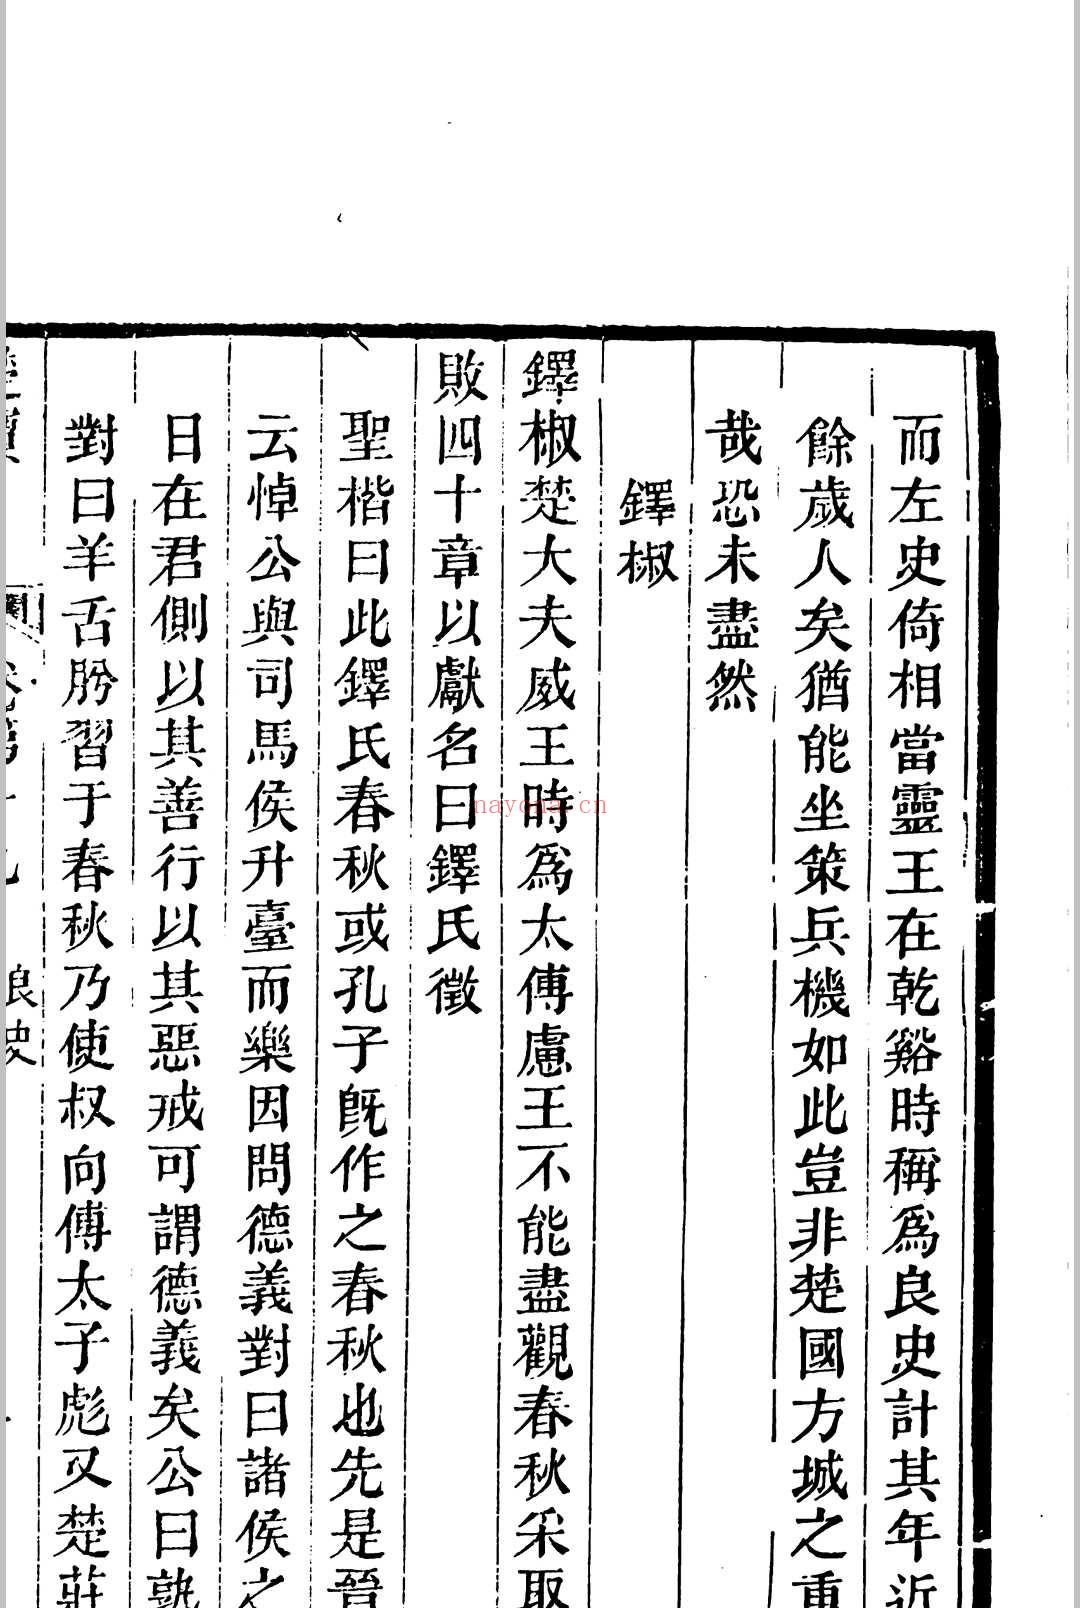 而左史倚相當靈王在乾谿時稱爲良史計其年近
餘歲人矣猶能坐策兵機如此豈非楚國方城之重
哉恐未盡然
鐸椒
鐸椒楚大夫威王時爲太傅慮王不能盡觀春秋采取
敗四十章以獻名曰鐸氏徵
聖楷曰此鐸氏春秋或孔子旣作之春秋也先是晉
云悼公與司馬侯升臺而樂因問德義對曰諸侯之
日在君側以其善行以其惡戒可謂德義矣公曰孰
對曰羊舌肸習于春秋乃使叔向傅太子彪又楚莊
nayona.cn